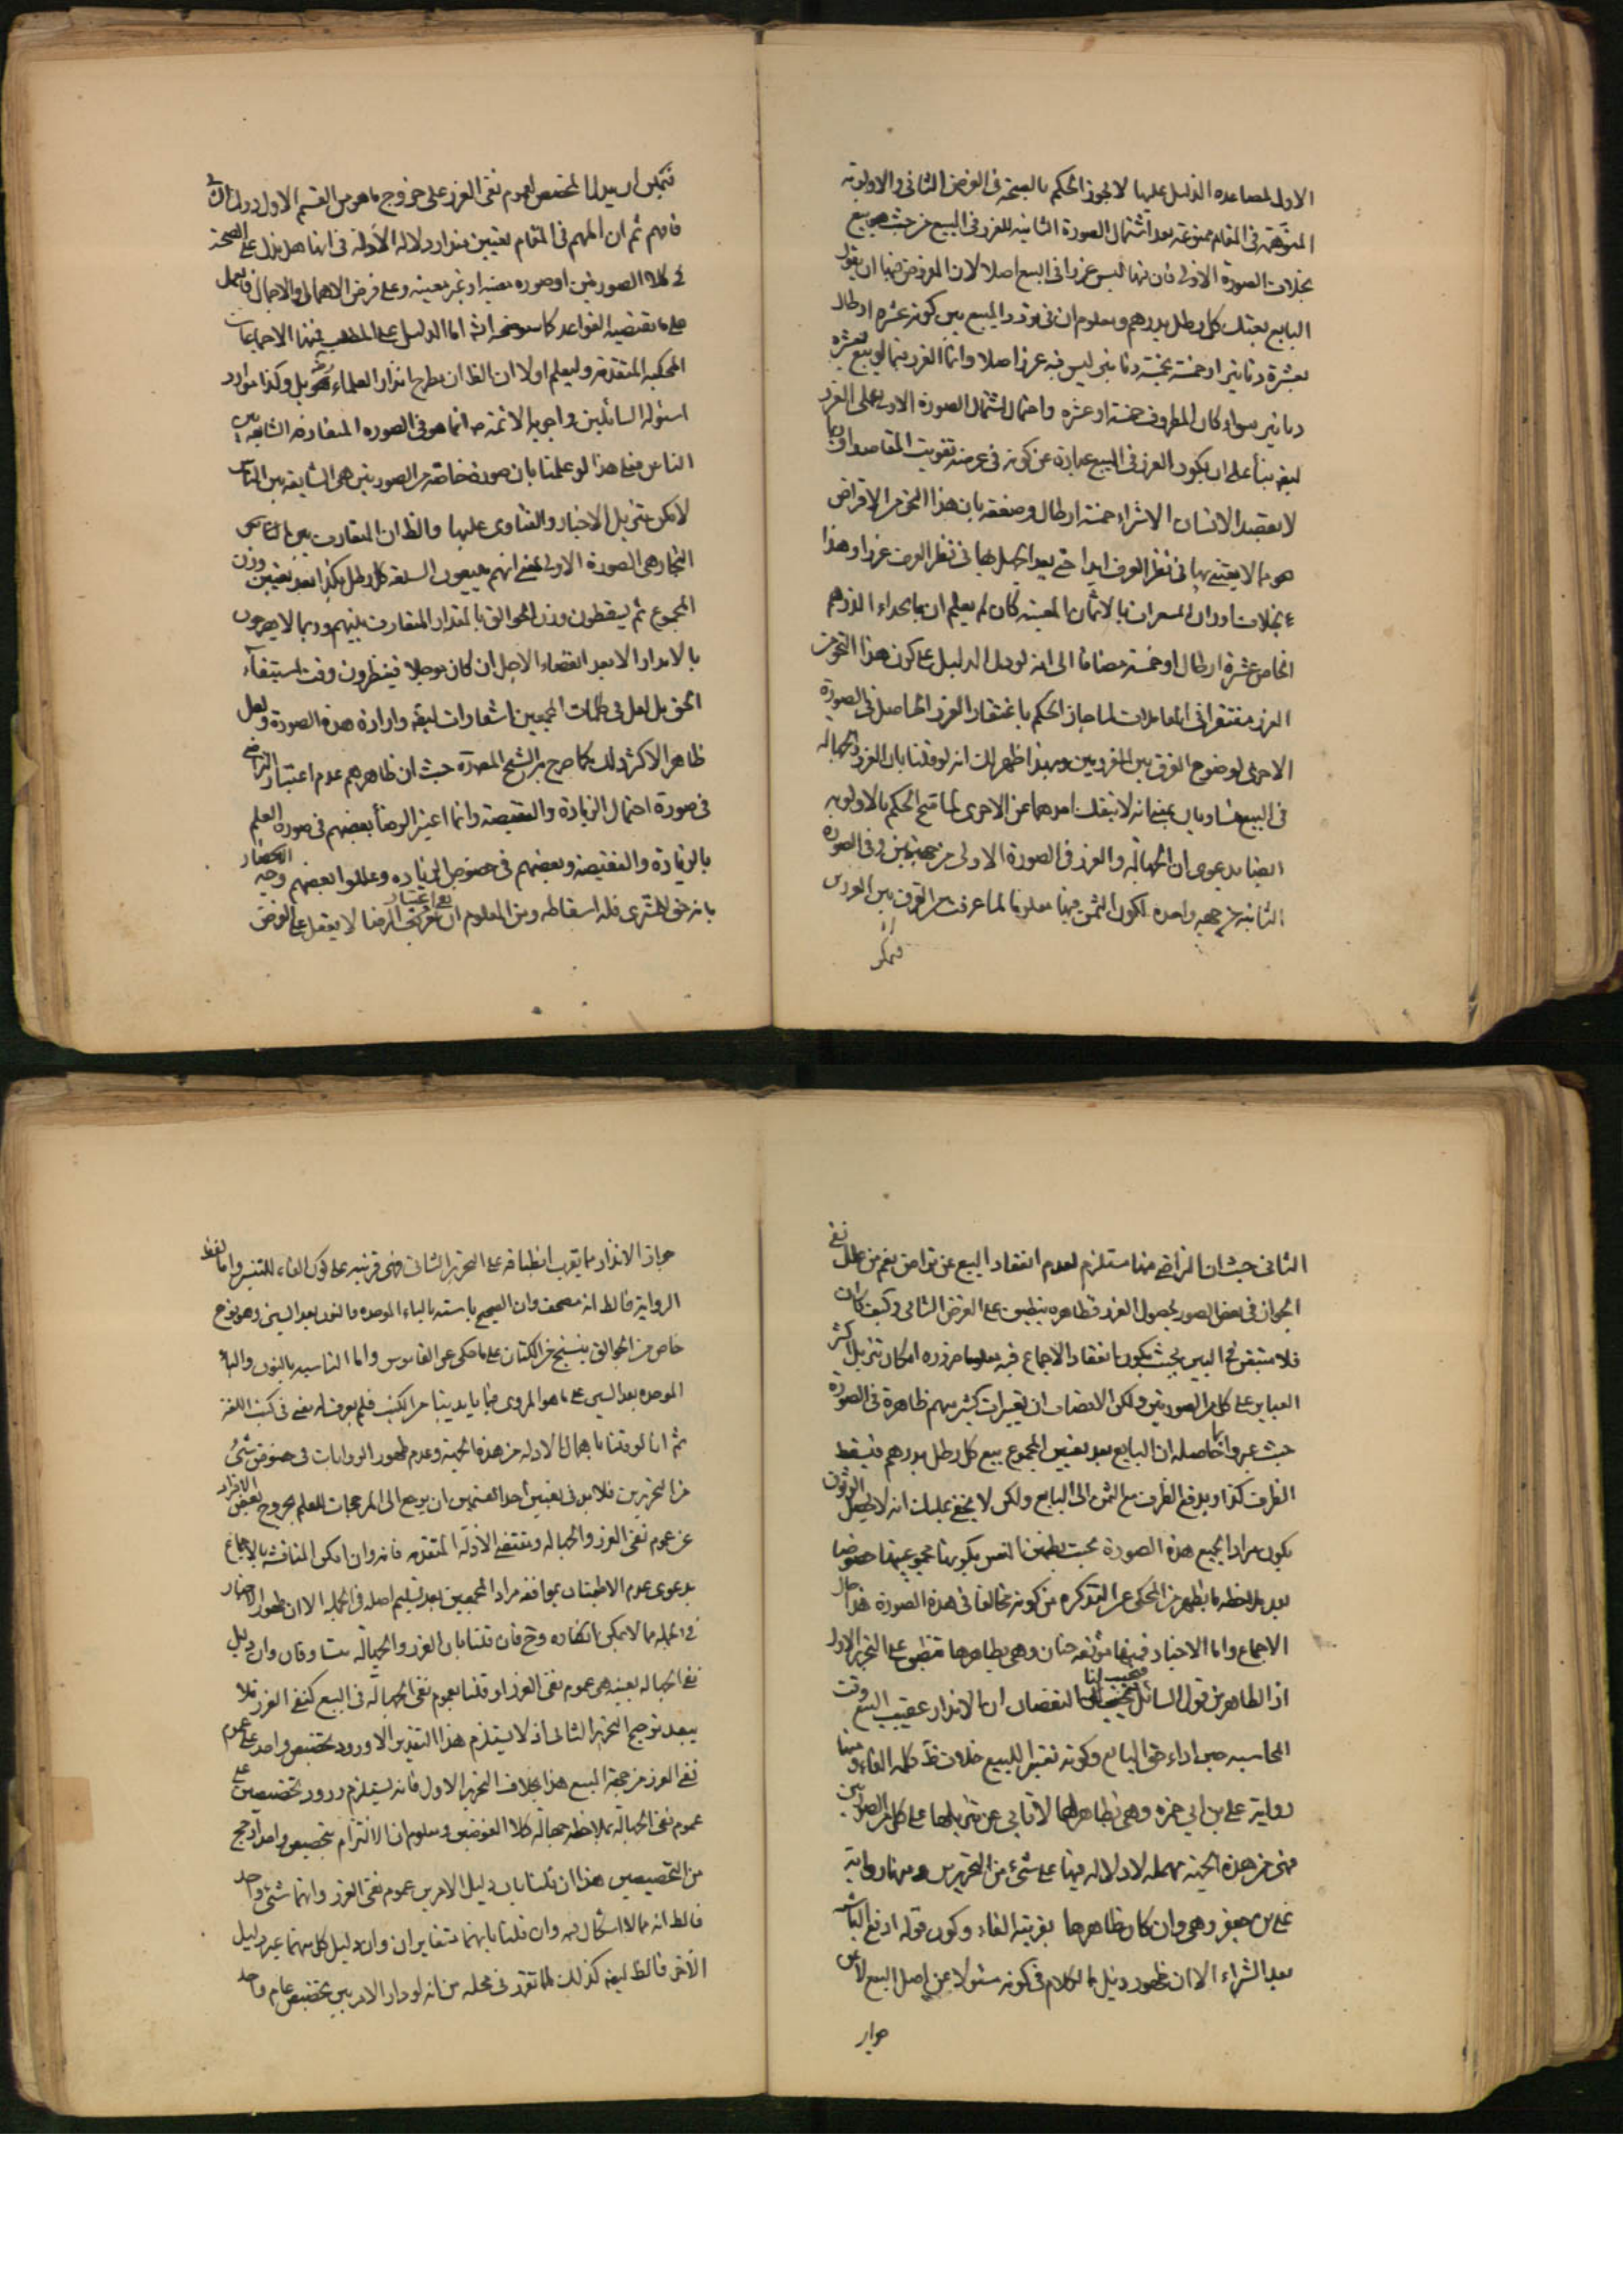 الاولى لمساعدة الدليل عليها لا يجوز الحكم بالصحة فى الفرض الثانى والاولوية
المتوهمة فى المقام ممنوعة بعد اشتمال الصورة الثانية للغرر فى البيع من حيث هو بيع
بخلاف الصورة الاولى فان فيها ليس غررا فى البيع اصلا لان المفروض فيها ان يقول
البايع بعتك كل رطل بدرهم ومعلوم ان فى تردد المبيع بين كونه عشرة ارطال
بعشرة دنانير او خمسة بخمسة دنانير ليس فيه غرر اصلا وانما الغرر فيما لو بيع بعشرة
دنانير سواء كان المظروف خمسة او عشرة واحتمال اشتمال الصورة الاولى على الغرر
ايضا بناء على ان يكون الغرر فى البيع عبارة عن كونه فى عرضة تفويت المقاصد
لا يقصد الانسان الا شراء خمسة ارطال وصفقة بان هذا النحو من الاغراض
هو مما لا يعتنى بها فى نظر العرف ابدا حتى يعد الجهل بها فى نظر العرف غررا وهذا
بخلاف تفاوت المسعرات بالاثمان المعينة كان لم يعلم ان ما بحذاء الدرهم
الخاص عشرة ارطال او خمسة مضافا الى انه لو دل الدليل على كون هذا النحو من
الغرر مغتفرا فى المعاملات لما جاز الحكم باغتفار الغرر الحاصل فى الصورة
الاخرى لوضوح الفرق بين الغررين وبهذا ظهر لك انه لو قلنا بان الغرر والجهالة
فى البيع متساويان بمعنى انه لا ينفك احدهما عن الاخرى لما صح الحكم بالاولوية
ايضا بدعوى ان الجهالة والغرر فى الصورة الاولى من جهتين وفى الصورة
الثانية من جهة واحدة لكون الثمن فيها معلوما لما عرفت من الفرق بين الغررين
فيمكن
فيمكن ان يدل المخصص لعموم نفى الغرر على خروج ما هو من القسم الاول دون الثانى
فافهم ثم ان المهم فى المقام تعيين مقدار دلالة الأدلة فى انها هل تدل على الصحة
فى كلا الصورتين او صورة معينة او غير معينة وعلى فرض الاهمال والاجمال فالعمل
على ما تقتضيه القواعد كما سيتضح انش اما الدليل على المطلب فمنها الاجماعات
المحكية المتقدمة وليعلم اولا ان الظ ان مطرح انظار العلماء رض بل وكذا موارد
اسئولة السائلين واجوبة الائمة ع انما هو فى الصورة المتعارفة الشايعة بين
الناس فعلى هذا لو علمنا بان صورة خاصة من الصورتين هى الشايعة بين الناس
لامكن تنزيل الاخبار والفتاوى عليها والظ ان المتعارف بين الناس
التجار هى الصورة الاولى بمعنى انهم يبيعون السلعة كل رطل بكذا بعد تعيين وزن
المجموع ثم يسقطون وزن الجوالق بالمقدار المتعارف بينهم وربما لا يصرحون
بالاندار الا بعد انقضاء الاجل ان كان موجلا فينظرون وقت استيفاء
الحق بل لعل فى كلمات المجمعين اشعارات ايضا وارادة هذه الصورة ولعل
ظاهر الاكثر ذلك كما صرح به الشيخ المصدرة حيث ان ظاهرهم عدم اعتبار التراضى
فى صورة احتمال الزيادة والنقيصة وانما اعتبر الرضا بعضهم فى صورة العلم
بالزيادة والنقيصة وبعضهم فى خصوص الزيادة وعللوا بعضهم وجه
بانه حق المشترى فله اسقاطه ومن المعلوم ان اعتبار الرضا لا يعقل على الفرض
الثانى حيث ان التراضى منها مستلزم لعدم انعقاد البيع عن تراض نعم من علل نفى
الجواز فى بعض الصور بحصول الغرر فظاهره ينطبق على الفرض الثانى وكيف كان
فلا مستبعد فى البين بحيث يكون انعقاد الاجماع فيه معلوما ضرورة امكان تنزيل اكثر
العباير على كل من الصورتين ولكن الانصاف ان تعبيرات كثير منهم ظاهرة فى الصورة
حيث عبروا بما حاصله ان البايع بعد تعيين المجموع يبيع كل رطل بدرهم فيسقط
الظرف كذا ويدفع الظرف مع الثمن الى البايع ولكن لا يخفى عليك انه لا يحصل الوثوق
بكون مراد الجميع هذه الصورة بحيث يطمئن النفس بكونها مجمع عليها خصوصا
بعد ملاحظة ما يظهر من المحكى عن التذكرة من كونه مخالفا فى هذه الصورة هذا حال
الاجماع واما الاخبار فمنها موثقة حنان وهى بظاهرها تنطبق على النحو الاول
اذ الظاهر من قول السائل فيحسب لنا النقصان ان الاندار عقيب البيع وقت
المحاسبة حين اداء حق البايع وكونه تفسيرا للبيع خلاف ظ كلمة الفاء ومنها
رواية على بن ابى حمزة وهى بظاهرها لا تأبى عن تنزيلها على كل من الصورتين
فهى من هذه الجهة مهملة لا دلالة فيها على شىء من النحوين ومنها رواية
على بن جعفر وهى وان كان ظاهرها بقرينة الفاء وكون قوله ادفع الباسنه
بعد الشراء الا ان ظهور ذيل الكلام فى كونه سئولا عن اصل البيع لا عن
جواز
جواز الاندار مما يقرب انطباقه على النحو الثانى فهى قرينة على كون الفاء للتفسير واما لفظ
الرواية فالظ انه مصحف وان الصحيح باسنه بالباء الموحدة والنون بعد السين وهو نوع
خاص من الجوالق ينسج من الكتان على ما حكى عن القاموس واما الناسبه بالنون والباء
الموحدة بعد السين على ما هو المروى فيما بايدينا من الكتب فلم يعرف له معنى فى كتب اللغة
ثم انا لو قلنا باهمال الادلة من هذه الجهة وعدم ظهور الروايات فى خصوص شىء
من النحوين فلا بد فى تعيين احد القسمين ان يرجع الى المرجحات للعلم بخروج بعض الافراد
عن عموم نفى الغرر والجهالة ومقتضى الأدلة المتقدمة فانه وان امكن المناقشة بالاجماع
بدعوى عدم الاطمينان بموافقة مراد المجمعين بعد تسليم اصله فى الجملة الا ان ظهور الاخبار
فى الجملة مما لا يمكن انكاره وح فان قلنا بان الغرر والجهالة متساوقان وان دليل
نفى الجهالة بعينه هى عموم نفى الغرر او قلنا بعموم نفى الجهالة فى البيع كنفى الغرر فلا
يبعد ترجيح النحو الثانى اذ لا يستلزم هذا التقدير الا ورود تخصيص واحد على عموم
نفى الغرر من جهة البيع هذا بخلاف النحو الاول فانه يستلزم ورود تخصيصين على
عموم نفى الجهالة بملاحظة جهالة كلا العوضين ومعلوم ان الالتزام بتخصيص واحد ارجح
من التخصيصين هذا ان قلنا بان دليل الامرين عموم نفى الغرر وانهما شىء واحد
فالظ انه مما لا اشكال فيه وان قلنا بانهما متغايران وان دليل كل منهما غير دليل
الآخر فالظ ايضا كذلك لما تقرر فى محله من انه لو دار الامر بين تخصيص عام واحد